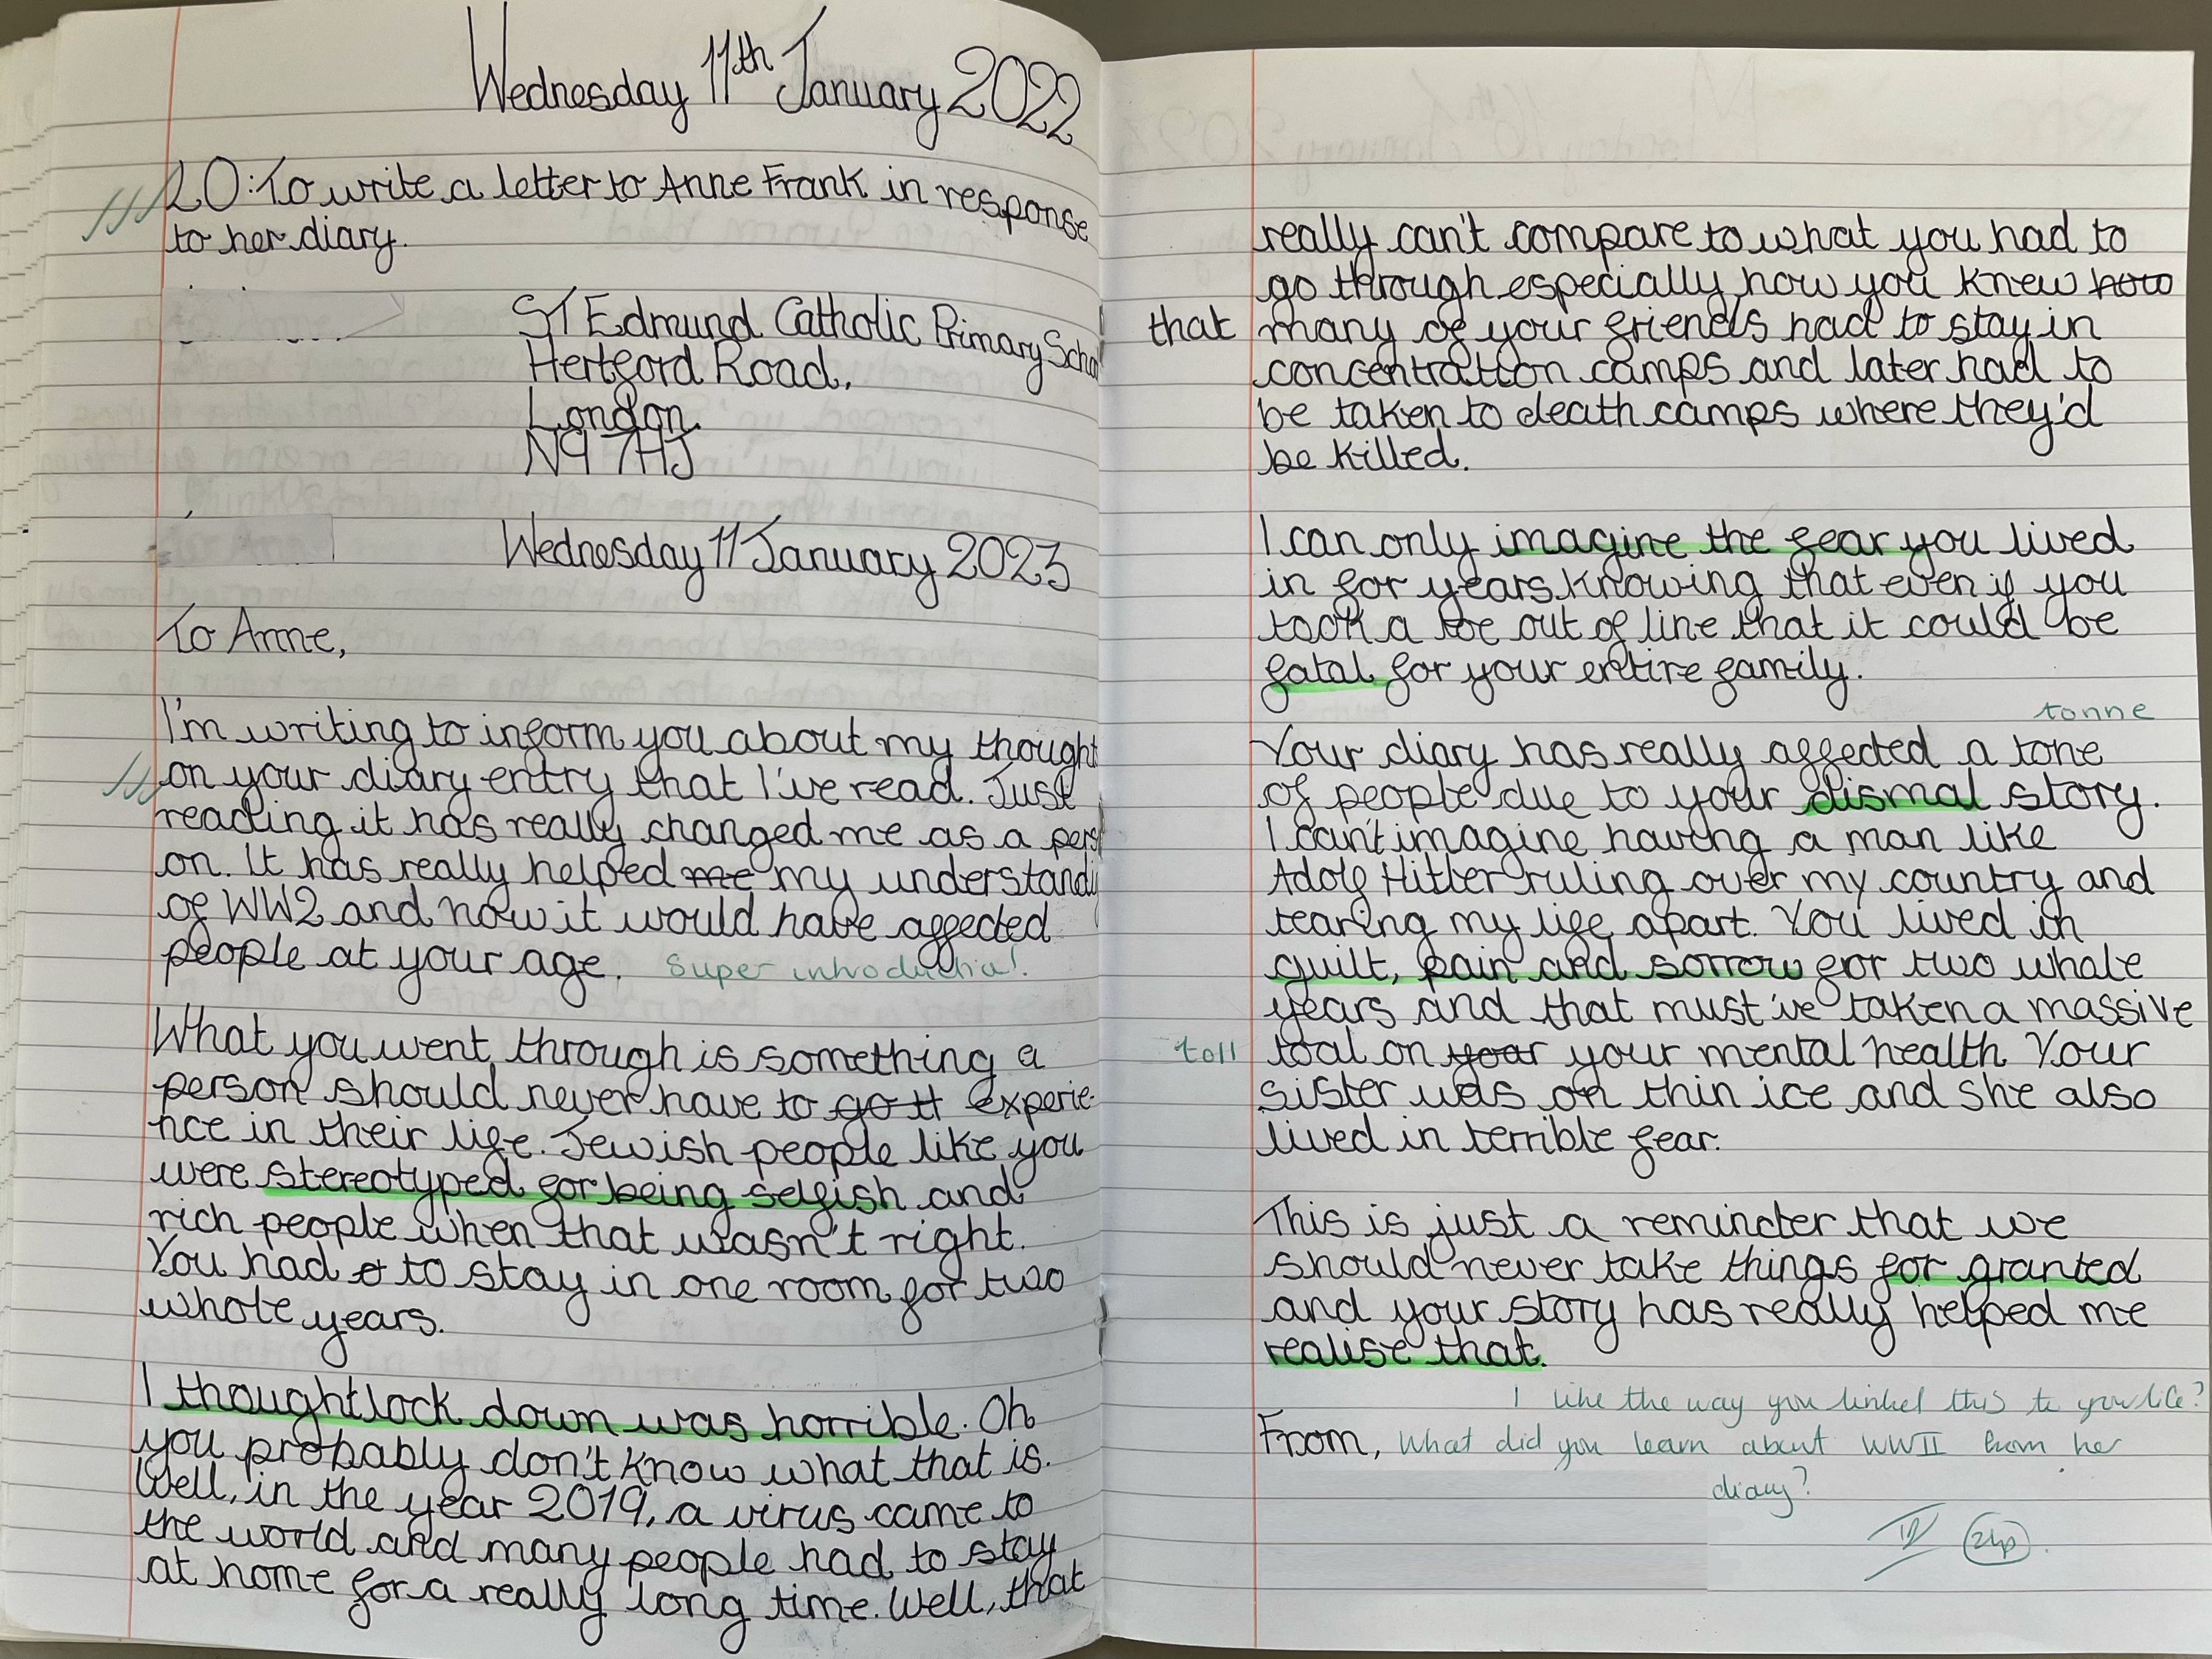 Wednesday 11th January 2022
LO: To write a letter to Anne Frank in response
to her diary.
ST Edmund Catholic Primary Scho
Hertford Road,
London,
N9 7HJ
Wednesday 11 January 2023
To Anne,
I'm writing to inform you about my thought
on your diary entry that I've read. Just
reading it has really changed me as a pers
on. It has really helped me my understandi
of WW2 and how it would have affected
people at your age. Super introduction!
What you went through is something a
person should never have to go tt experie-
nce in their life. Jewish people like you
were stereotyped for being selfish and
rich people when that wasn't right.
You had to stay in one room for two
whole years.
I thought lock down was horrible. Oh
you probably don't know what that is.
Well, in the year 2019, a virus came to
the world and many people had to stay
at home for a really long time. Well, that
really can't compare to what you had to
go through especially how you knew how
that many of your friends had to stay in
concentration camps and later had to
be taken to death camps where they'd
be killed.
I can only imagine the fear you lived
in for years knowing that even if you
took a toe out of line that it could be
fatal for your entire family.
tonne
Your diary has really affected a tone
of people due to your dismal story.
I can't imagine having a man like
Adolf Hitler ruling over my country and
tearing my life apart. You lived in
guilt, pain and sorrow for two whole
years and that must've taken a massive
toll toal on your your mental health. Your
sister was on thin ice and she also
lived in terrible fear.
This is just a reminder that we
should never take things for granted
and your story has really helped me
realise that.
I like the way you linked this to your life?
From, What did you learn about WWII from her
diary?
2hp